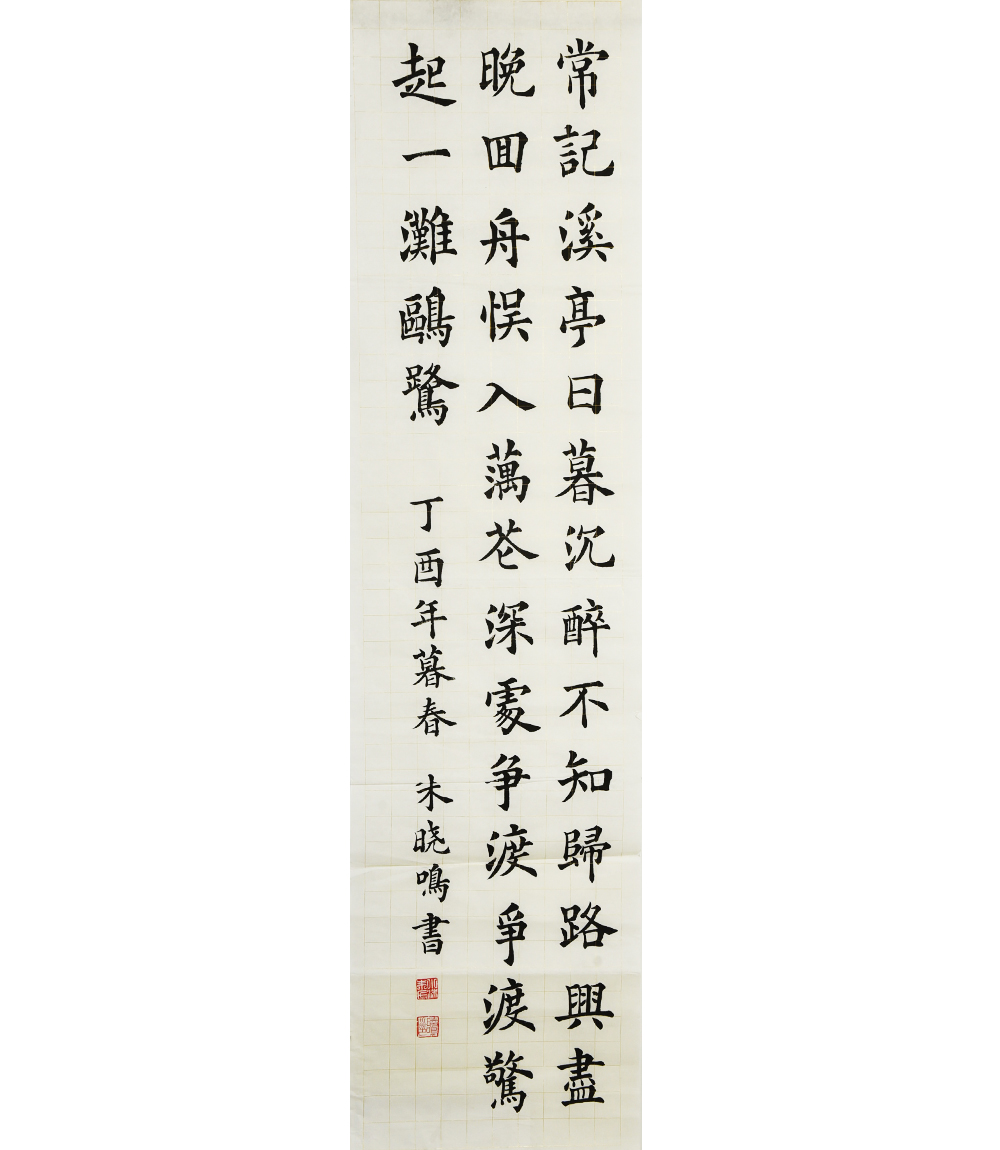 常記溪亭日暮沉醉不知歸路興盡
晚囬舟悮入藕花深處争渡爭渡驚
起一灘鷗鷺
丁酉年暮春
朱晓鳴書